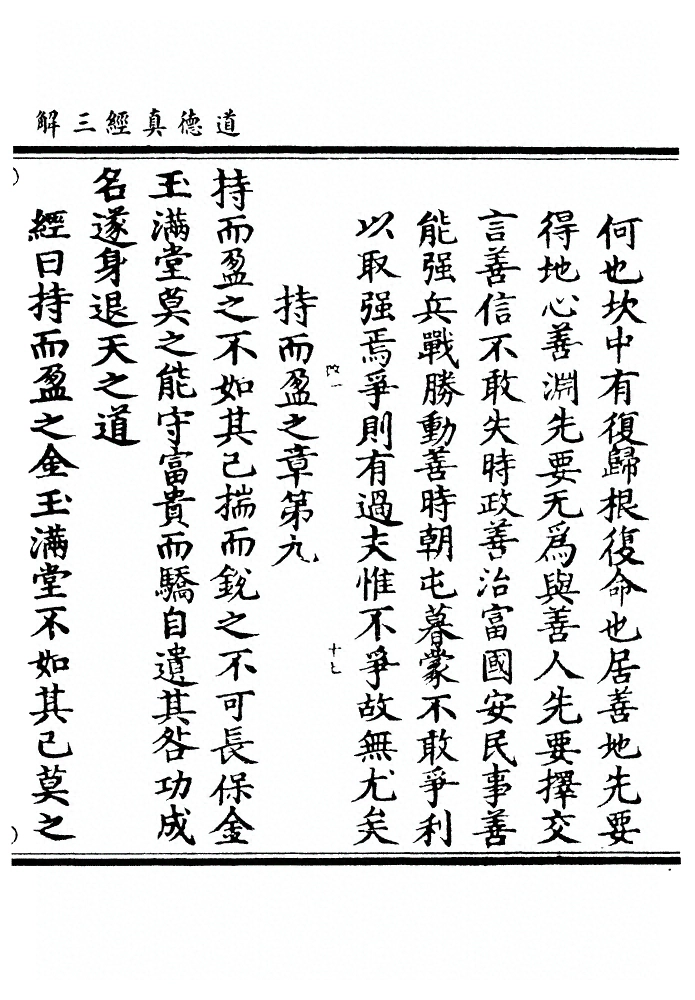 道德真經三解
何也坎中有復歸根復命也居善地先要
得地心善淵先要无為與善人先要擇交
言善信不敢失時政善治富國安民事善
能强兵戰勝動善時朝屯暮蒙不敢爭利
以取强焉爭則有過夫惟不爭故無尤矣
改一
十七
持而盈之章第九
持而盈之不如其已揣而銳之不可長保金
玉滿堂莫之能守富貴而驕自遺其咎功成
名遂身退天之道
經曰持而盈之金玉滿堂不如其已莫之